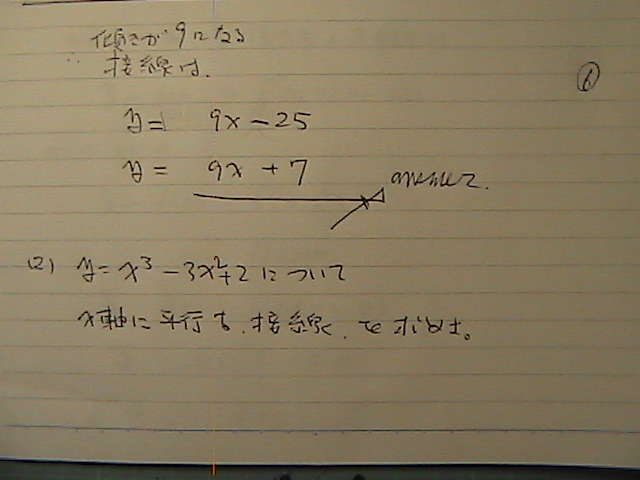 傾きが9になる
∴ 接線は.
6
y = 9x - 25
y = 9x + 7
answer.
(2) y = x³ - 3x² + 2 について
x軸に平行な.接線.を求めよ。